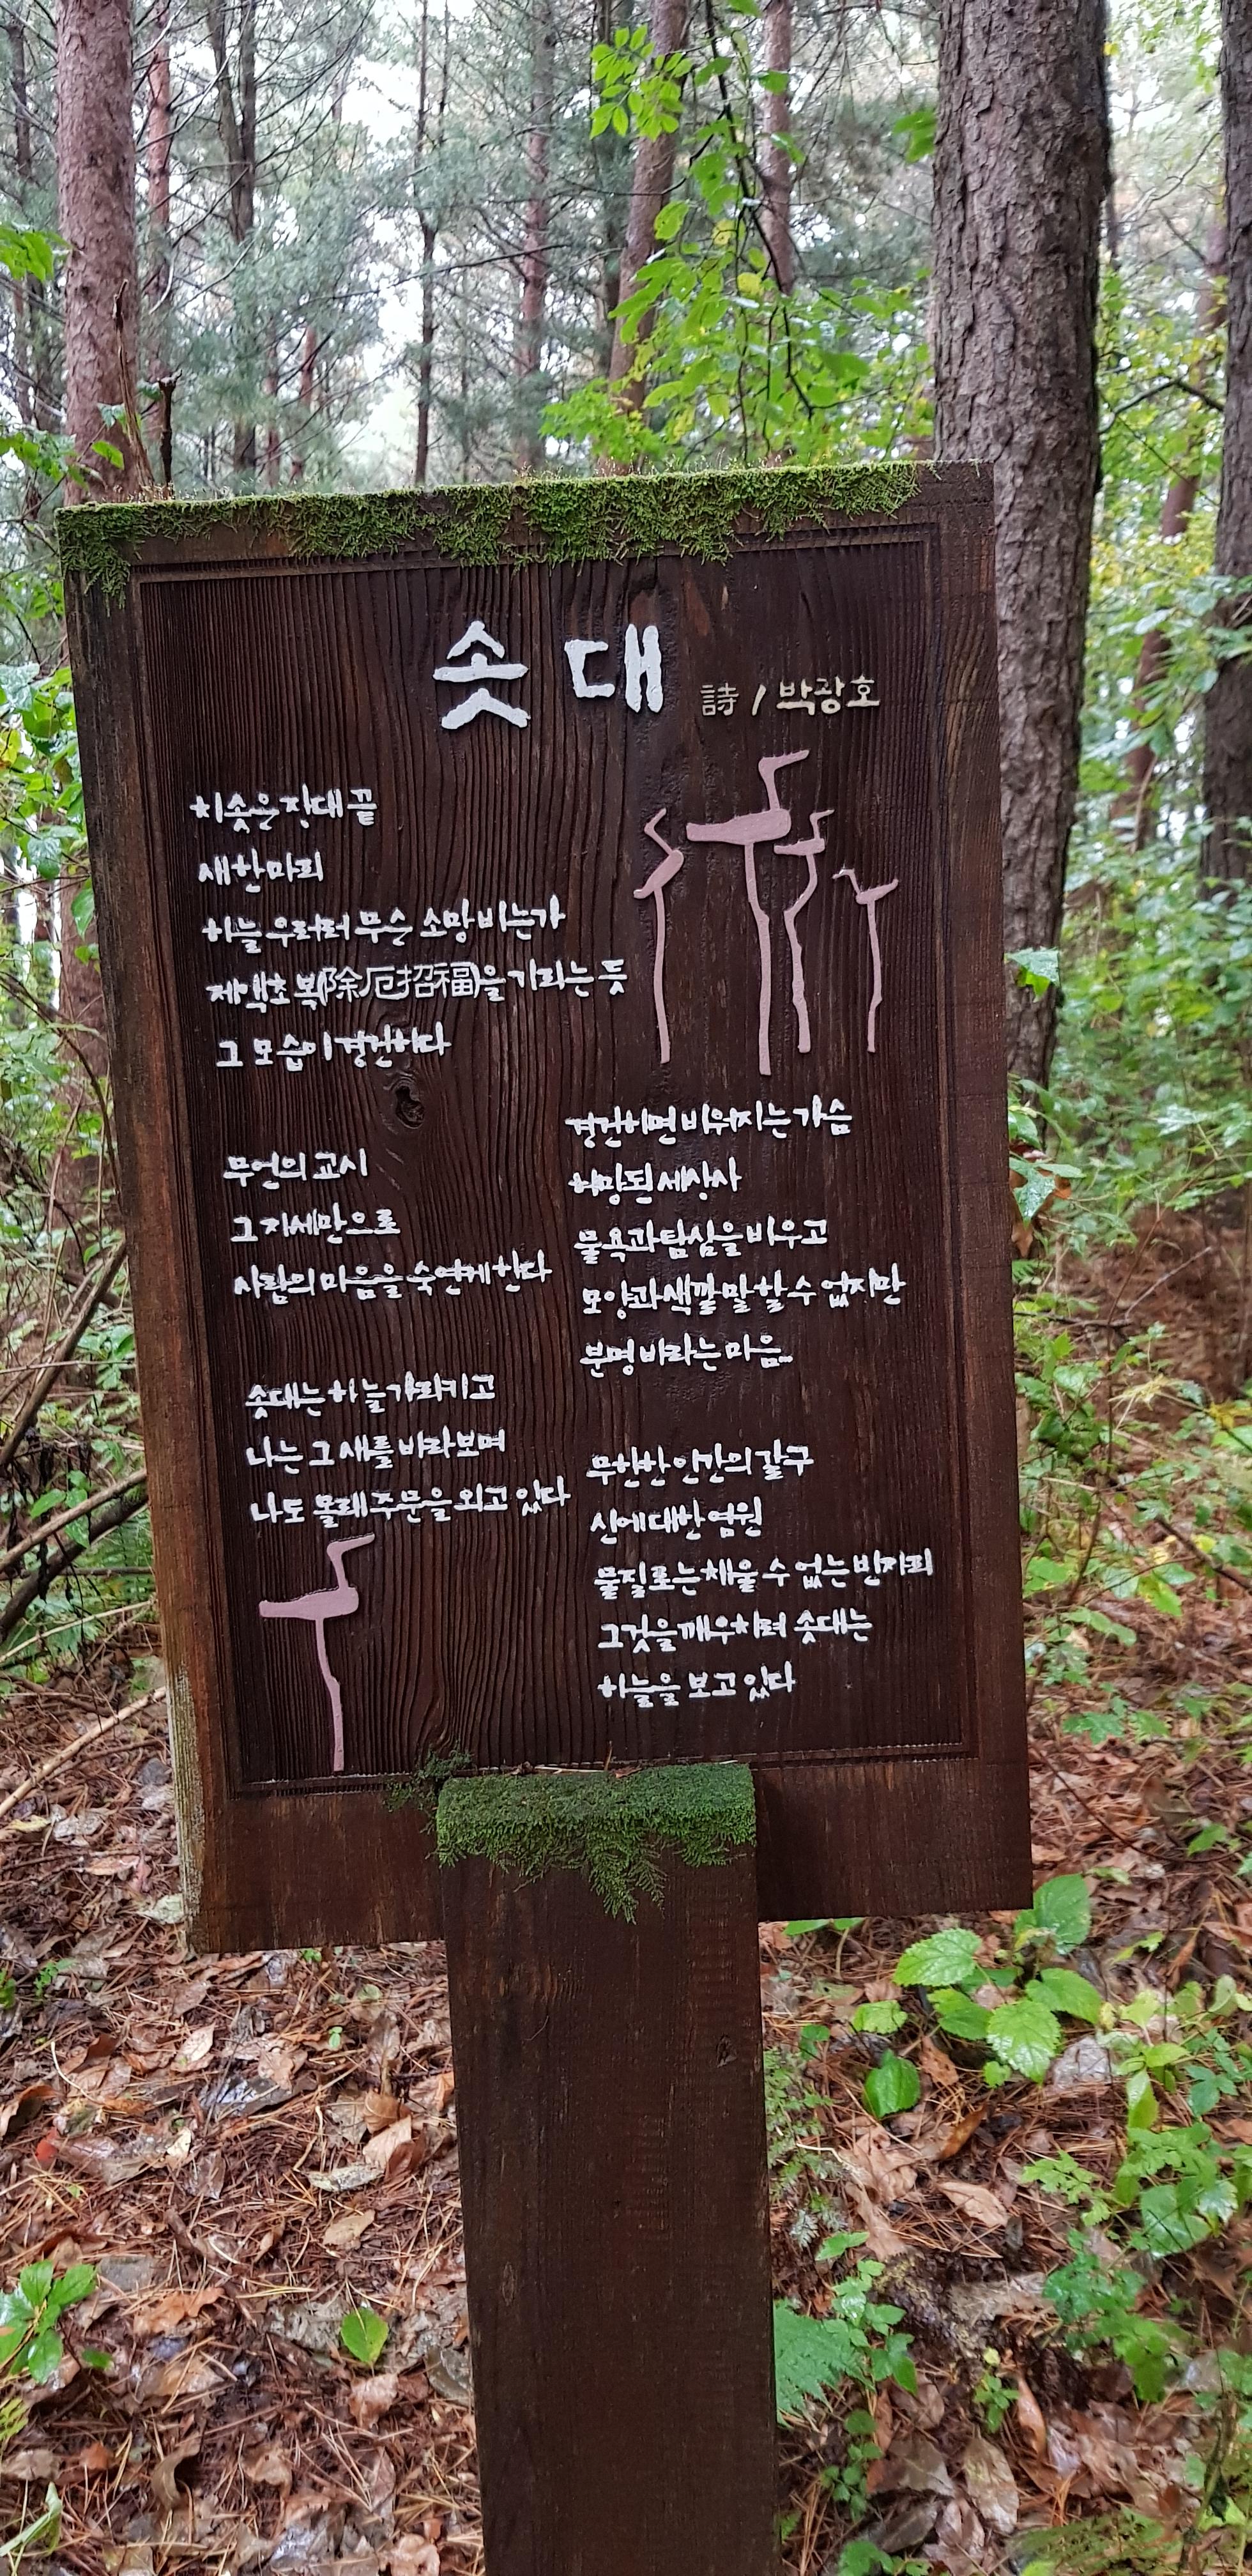 솟대
詩 / 박광호
치솟은 장대 끝
새 한 마리
하늘 우러러 무슨 소망 비는가
제액초복(除厄招福)을 기리는 듯
그 모습이 경건하다
무언의 교시
그 자세만으로
사람의 마음을 숙연케 한다
솟대는 하늘 가리키고
나는 그 새를 바라보며
나도 몰래 주문을 외고 있다
경건하면 비워지는 가슴
허망된 세상사
물욕과 탐심을 비우고
모양과 색깔 말 할 수 없지만
분명 바라는 마음..
무한한 인간의 갈구
신에 대한 염원
물질로는 채울 수 없는 빈자리
그것을 깨우치려 솟대는
하늘을 보고 있다